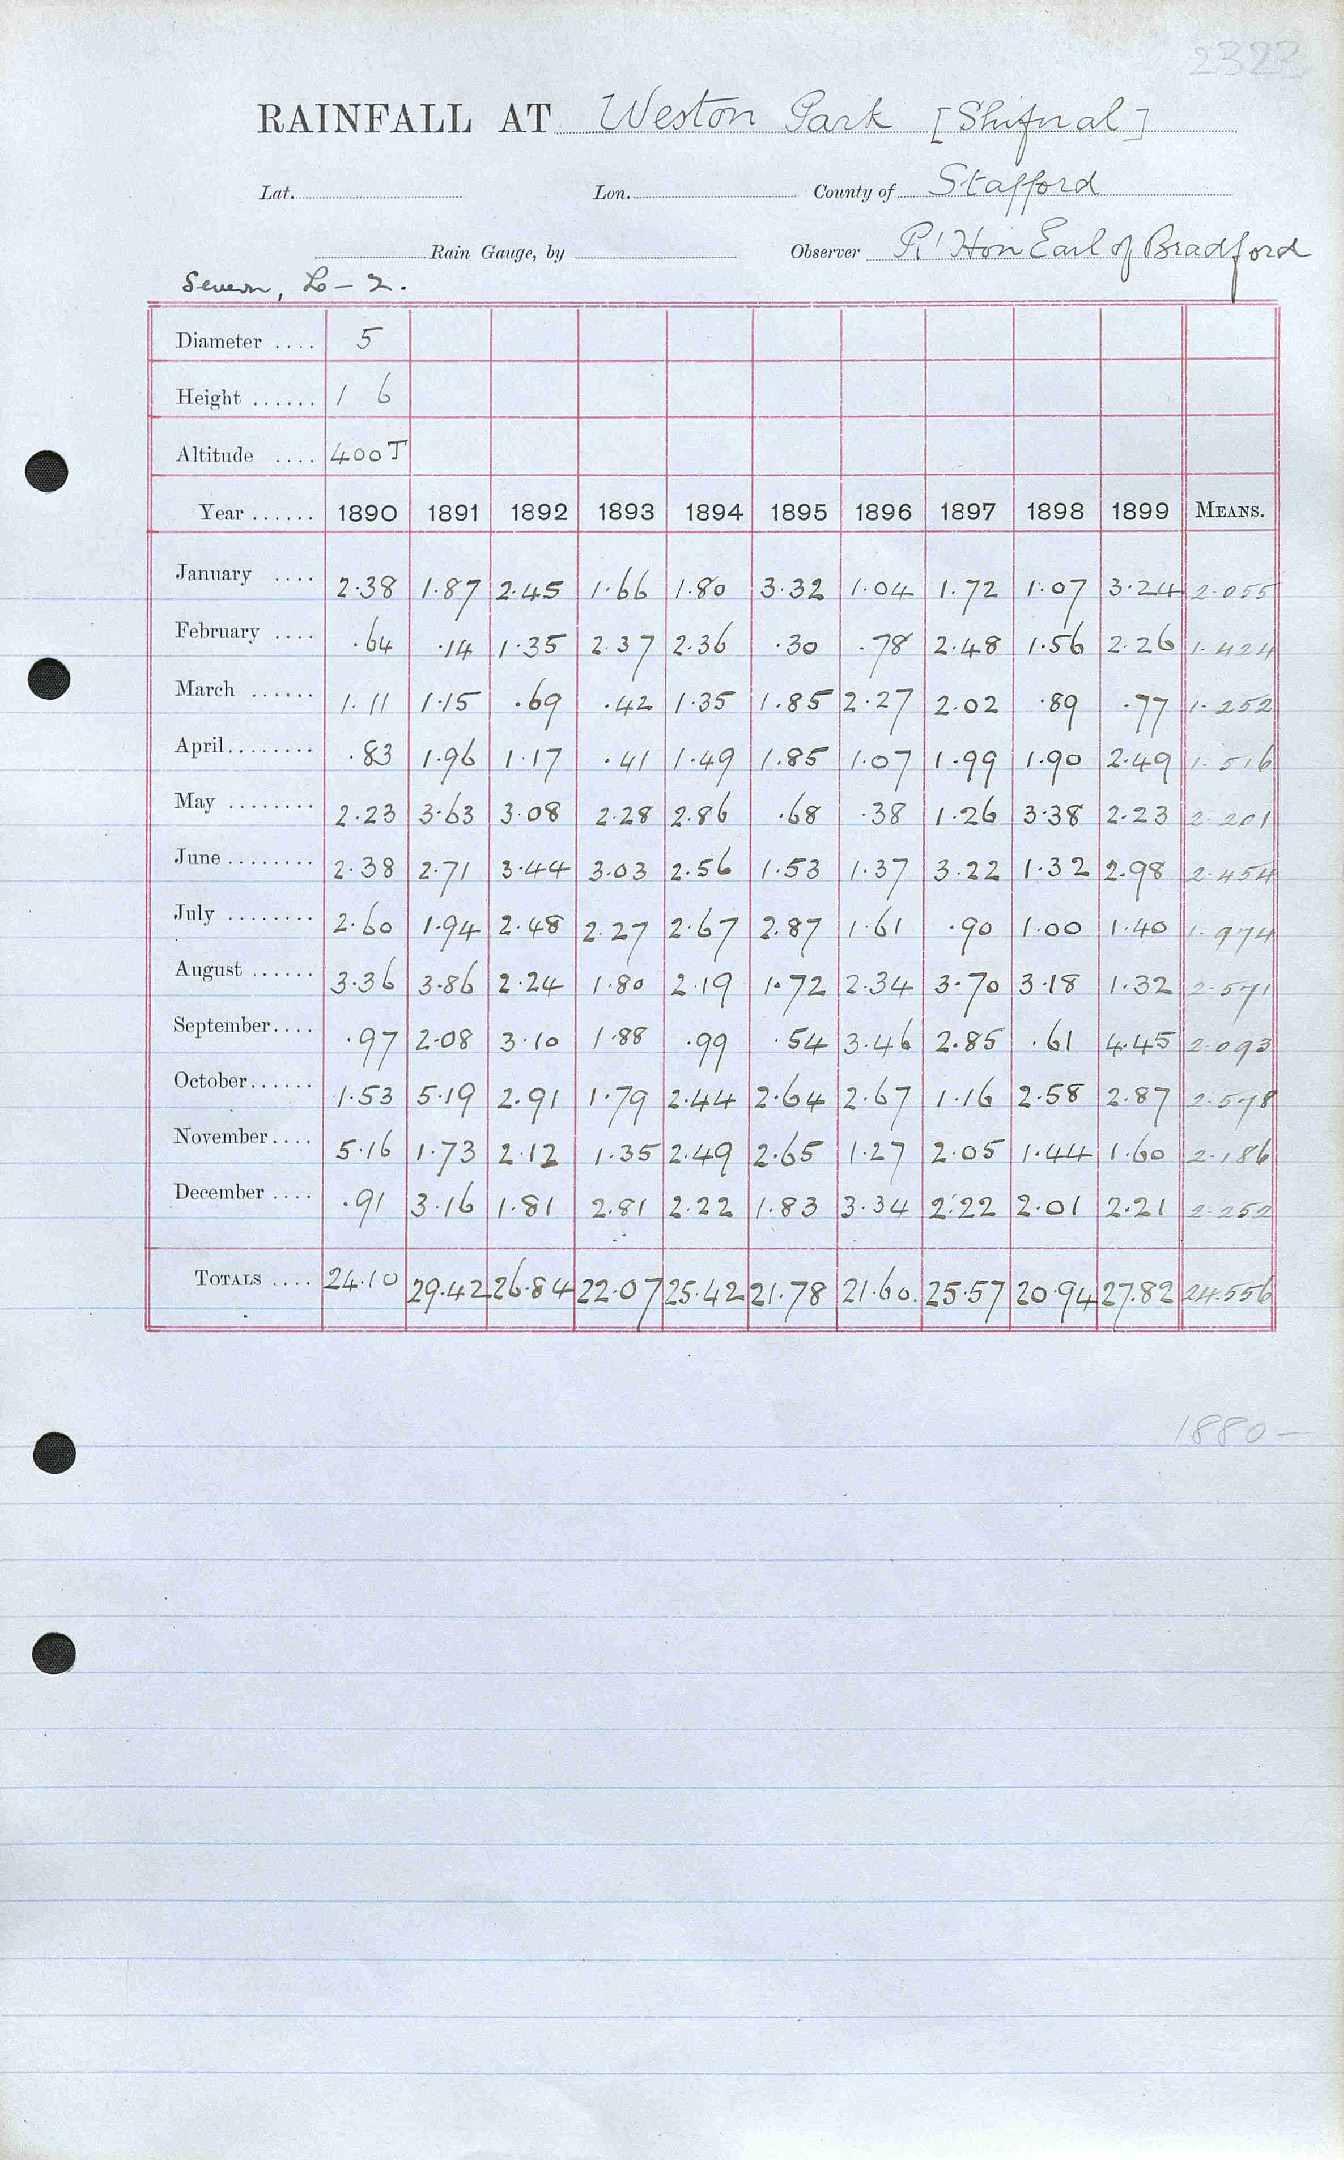 2323
RAINFALL AT Weston Park [Shifnal]
Lat. Lon. County of Stafford
Rain Gauge, by Observer Rt Hon Earl of Bradford
Severn, L - 2.
Diameter .... 5
Height ...... 1 6
Altitude .... 400 T
Year ...... 1890 1891 1892 1893 1894 1895 1896 1897 1898 1899 MEANS.
January .... 2.38 1.87 2.45 1.66 1.80 3.32 1.04 1.72 1.07 3.24 2.055
February .... .64 .14 1.35 2.37 2.36 .30 .78 2.48 1.56 2.26 1.424
March ...... 1.11 1.15 .69 .42 1.35 1.85 2.27 2.02 .89 .77 1.252
April........ .83 1.96 1.17 .41 1.49 1.85 1.07 1.99 1.90 2.49 1.516
May ........ 2.23 3.63 3.08 2.28 2.86 .68 .38 1.26 3.38 2.23 2.201
June ........ 2.38 2.71 3.44 3.03 2.56 1.53 1.37 3.22 1.32 2.98 2.454
July ........ 2.60 1.94 2.48 2.27 2.67 2.87 1.61 .90 1.00 1.40 1.974
August ...... 3.36 3.86 2.24 1.80 2.19 1.72 2.34 3.70 3.18 1.32 2.571
September.... .97 2.08 3.10 1.88 .99 .54 3.46 2.85 .61 4.45 2.093
October...... 1.53 5.19 2.91 1.79 2.44 2.64 2.67 1.16 2.58 2.87 2.578
November.... 5.16 1.73 2.12 1.35 2.49 2.65 1.27 2.05 1.44 1.60 2.186
December .... .91 3.16 1.81 2.81 2.22 1.83 3.34 2.22 2.01 2.21 2.252
TOTALS .... 24.10 29.42 26.84 22.07 25.42 21.78 21.60. 25.57 20.94 27.82 24.556
1880 -